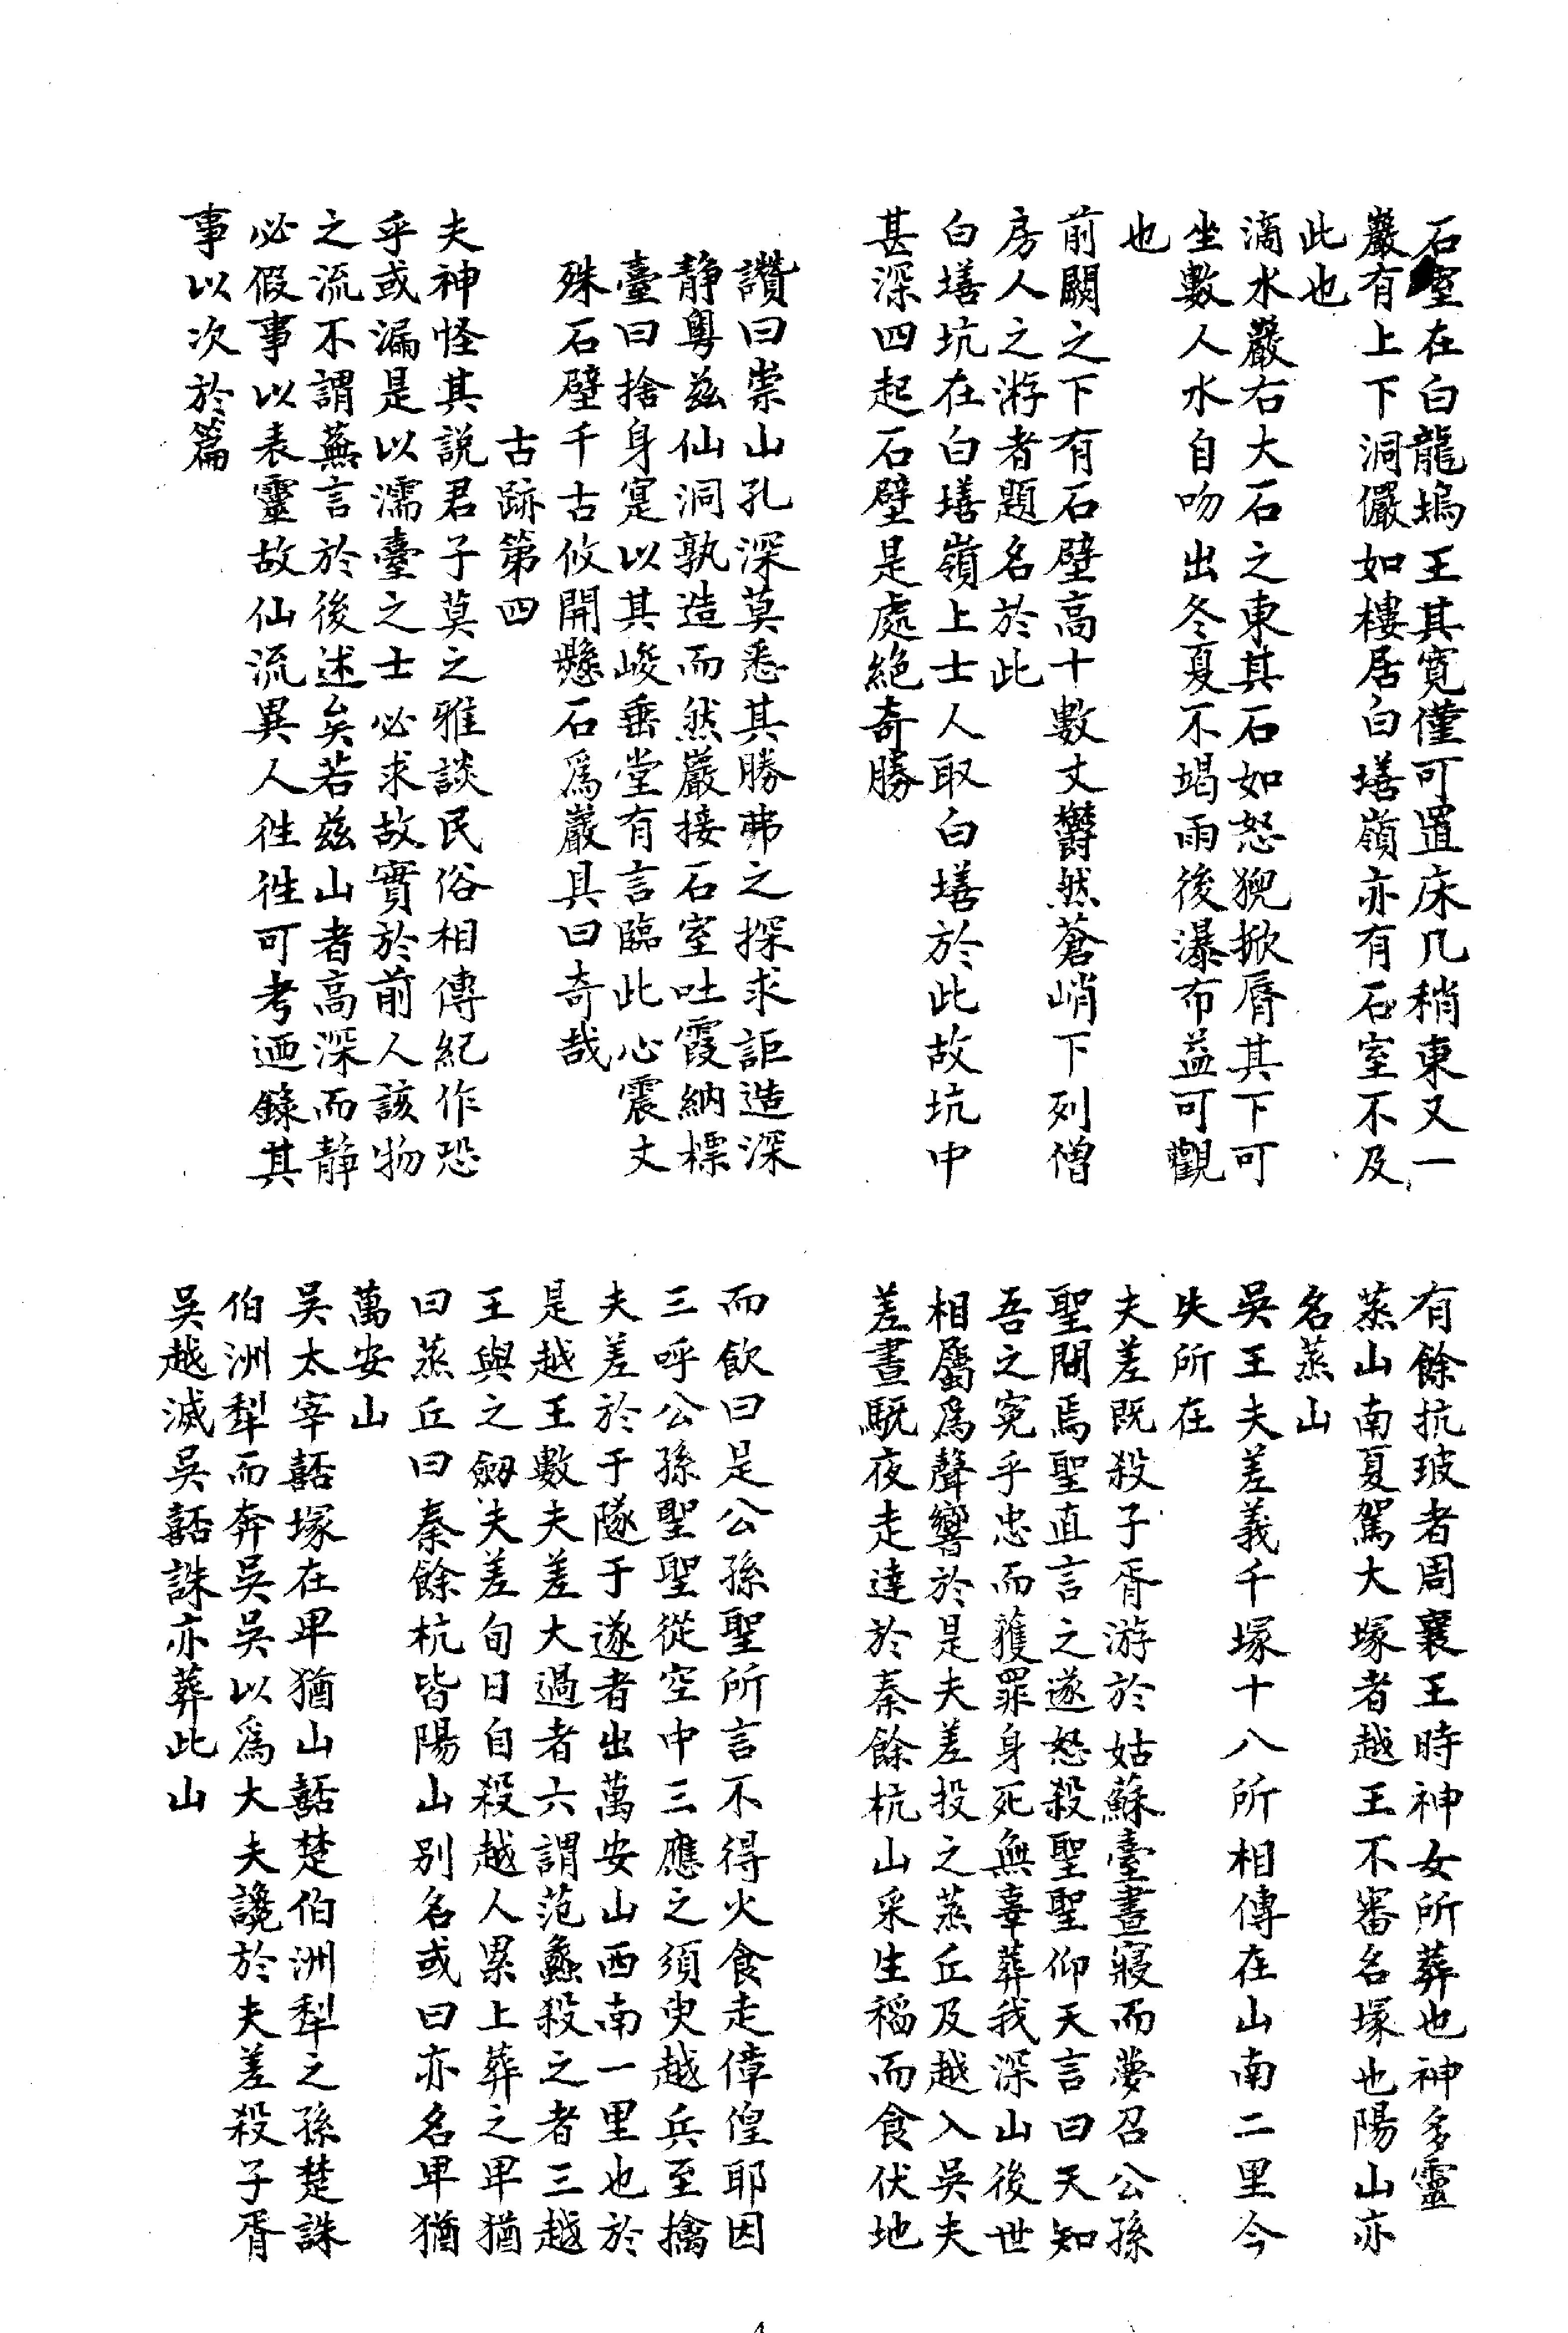 石室在白龍塢王其寬僅可置床几稍東又一
巖有上下洞儼如樓居白墡嶺亦有石室不及
此也
滴水巖右大石之東其石如怒猊掀脣其下可
坐數人水自吻出冬夏不竭雨後瀑布益可觀
也
前闕之下有石壁高十數丈欝然蒼峭下列僧
房人之游者題名於此
白墡坑在白墡嶺上士人取白墡於此故坑中
甚深四起石壁是處絶奇勝
讚曰崇山孔深莫悉其勝弗之探求詎造深
靜粤兹仙洞孰造而然巖接石室吐霞納標
臺曰捨身寔以其峻垂堂有言臨此心震丈
殊石壁千古攸開懸石爲巖具曰奇哉
古跡第四
夫神怪其説君子莫之雅談民俗相傳紀作恐
乎或漏是以濡臺之士必求故實於前人該物
之流不謂蕪言於後述矣若兹山者高深而静
必假事以表靈故仙流異人徃徃可考迺錄其
事以次於篇
有餘抗玻者周襄王時神女所葬也神多靈
蒸山南夏駕大塚者越王不審名塚也陽山亦
名蒸山
吳王夫差義千塚十八所相傳在山南二里今
失所在
夫差既殺子胥游於姑蘇臺晝寢而夢召公孫
聖問焉聖直言之遂怒殺聖聖仰天言曰天知
吾之寃乎忠而獲罪身死無辜葬我深山後世
相屬爲聲響於是夫差投之蒸丘及越入吳夫
差晝馳夜走達於秦餘杭山采生稻而食伏地
而飲曰是公孫聖所言不得火食走偉偟耶因
三呼公孫聖聖從空中三應之須臾越兵至擒
夫差於于隧于遂者出萬安山西南一里也於
是越王數夫差大過者六謂范蠡殺之者三越
王與之劔夫差旬日自殺越人累上葬之卑猶
曰蒸丘曰秦餘杭皆陽山别名或曰亦名卑猶
萬安山
吳太宰嚭塚在卑猶山嚭楚伯洲犁之孫楚誅
伯洲犁而奔吳吳以爲大夫讒於夫差殺子胥
吳越滅吳嚭誅亦葬此山